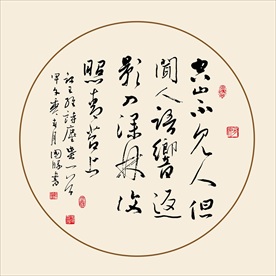 空山不見人但
聞人語響返
影入深林復
照青苔上
王維詩鹿柴一首
甲午 月 書